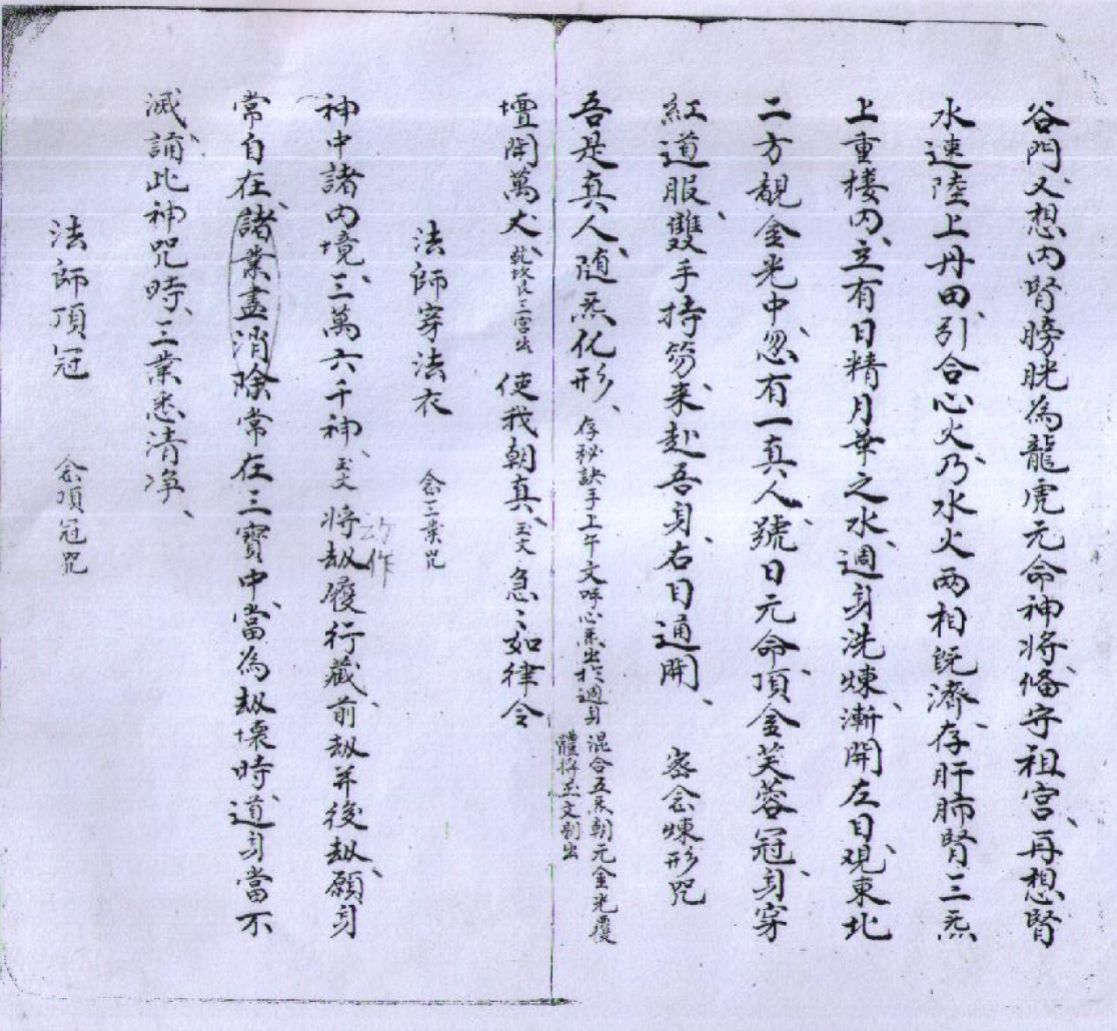 谷門又想內腎膀胱為龍虎元命神將俻守祖宮、再想腎
水速陸上丹田、引合心火、乃水火兩相既濟、存肝肺腎三炁
上重樓內、立有日精月華之水、週身洗煉、漸開左目、現東北
二方覩金光中、忽有一真人、號曰元命、頂金芙蓉冠、身穿
紅道服、雙手持笏、來赴吾身、右目通開、 密念煉形咒
吾是真人、隨炁化形、存秘訣手上午文呼心炁出於週身混合五炁朝元金光覆體將玉文剔出
壇開萬丈 乾坎艮三宮出 使我朝真、玉文 急〻如律令
法師穿法衣 念三業咒
神中諸內境、三萬六千神、玉文 將劫履行藏、前劫并後劫、願身
功作
常自在、諸業盡消除、常在三寶中、當為劫壞時、道身當不
滅、誦此神咒時、三業悉清淨、
法師頂冠 念頂冠咒